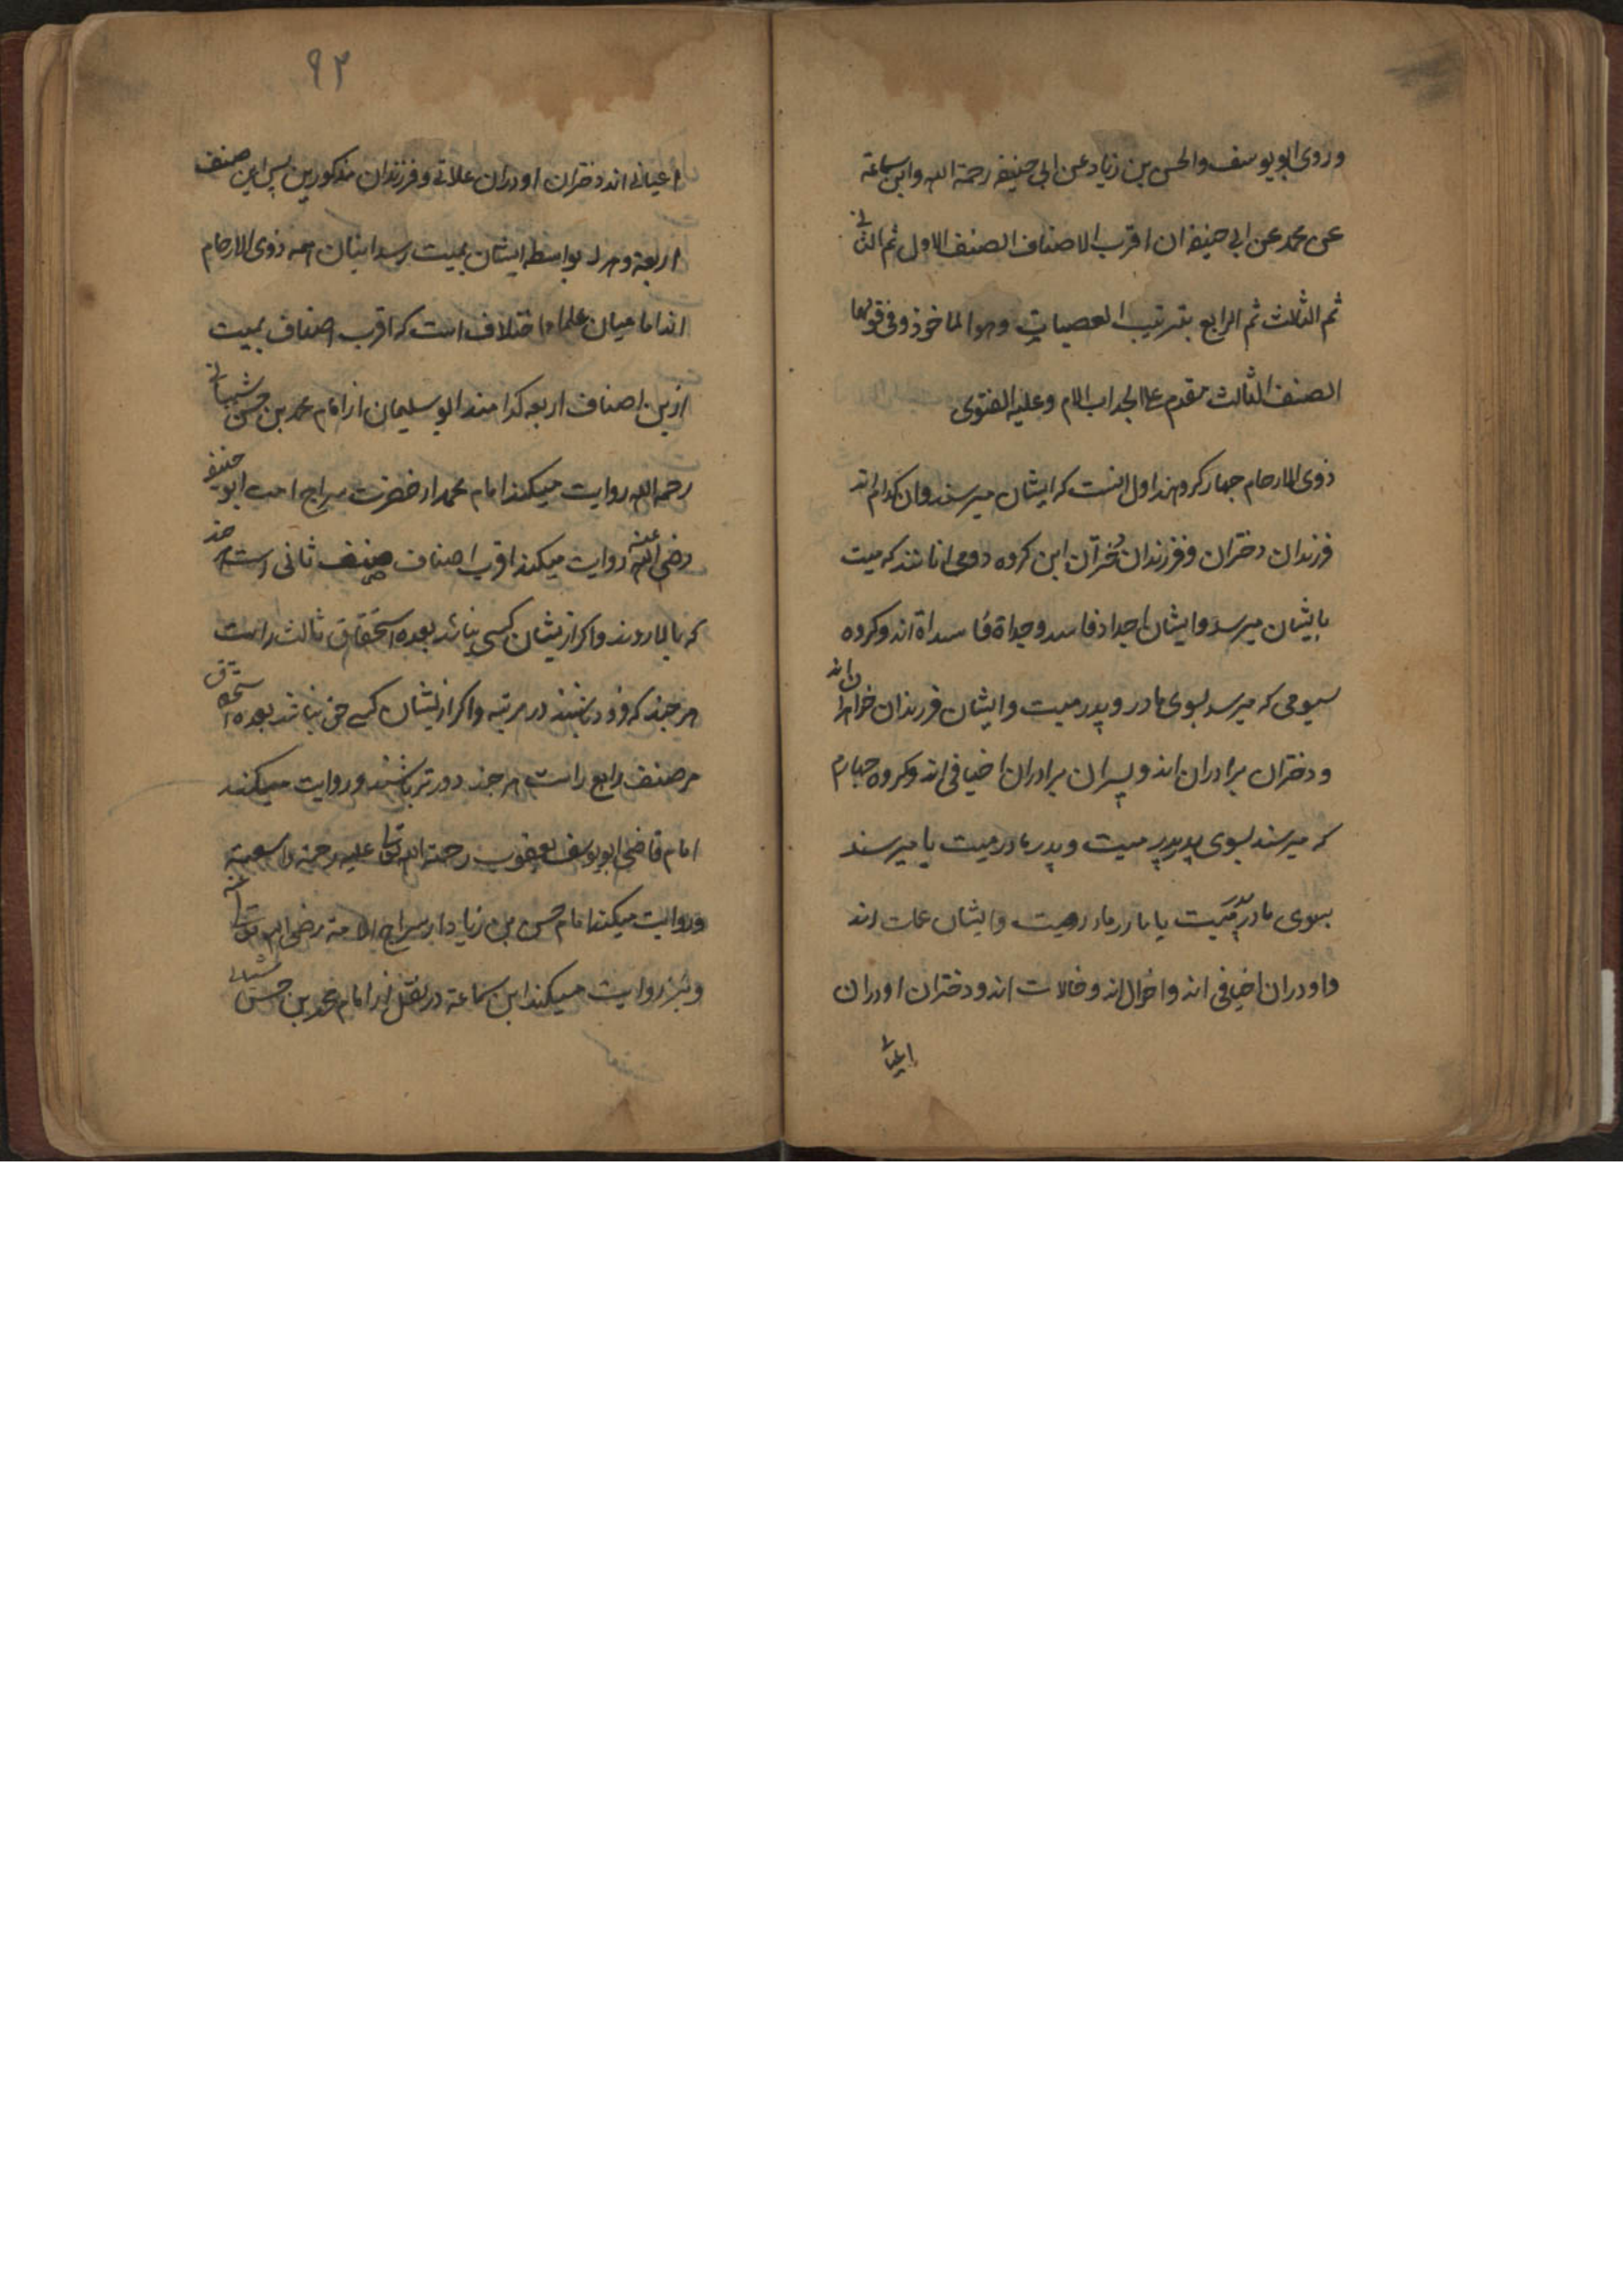 وروی ابو یوسف والحسن بن زیاد عن ابی حنیفه رحمة الله وابن سماعة
عن محمد عن ابی حنیفه ان اقرب الاصناف الصنف الاول ثم الثانی
ثم الثالث ثم الرابع بترتیب العصبات وهو الماخوذ وفی قولهما
الصنف الثالث مقدم علی الجد اب الام وعلیه الفتوی
ذوی الارحام جهار کروهند اول انست که ایشان میرسند وان کدام اند
فرزندان دختران وفرزندان دختران این کروه دومی انانند که میت
بایشان میرسد وایشان اجداد فاسد وجداة فاسداة اند وکروه
سیومی که میرسد بسوی مادر وپدر میت وایشان فرزندان خواهران اند
ودختران برادران اند وپسران برادران اخیافی اند وکروه جهارم
که میرسند بسوی پدر پدر میت وپدر مادر میت یا میرسند
بسوی مادر پدر میت یا مادر مادر میت وایشان عمات اند
واودران اخیافی اند واخوال اند وخالات اند ودختران اودران
اعیانی
۹۲
اعیانی اند دختران اودران علاتی وفرزندان مذکورین پس این صنف
اربعه وهرکه بواسطه ایشان بمیت رسد اینان همه ذوی الارحام
اند اما میان علما اختلاف است که اقرب اصناف بمیت
ازین اصناف اربعه کدامند ابو سلیمان از امام محمد بن حسن شیبانی
رحمه الله روایت میکند امام محمد از حضرت سراج امت ابو حنیفه
رضی الله عنه روایت میکند اقرب اصناف صنف ثانی است هر جند
که بالا روند واکر ازیشان کسی نباشد بعده استحقاق ثالث راست
هر جند که فرود باشند در مرتبه واکر ازیشان کسی نباشد بعده استحقاق
مر صنف رابع راست هر جند دورتر باشند وروایت میکند
امام قاضی ابو یوسف یعقوب رحمة الله تعالی علیه رحمة واسعة
وروایت میکند امام حسن بن زیاد از سراج الامة رضی الله تعالی عنه
ونیز روایت میکند ابن سماعة در نقل از امام محمد بن حسن شیبانی